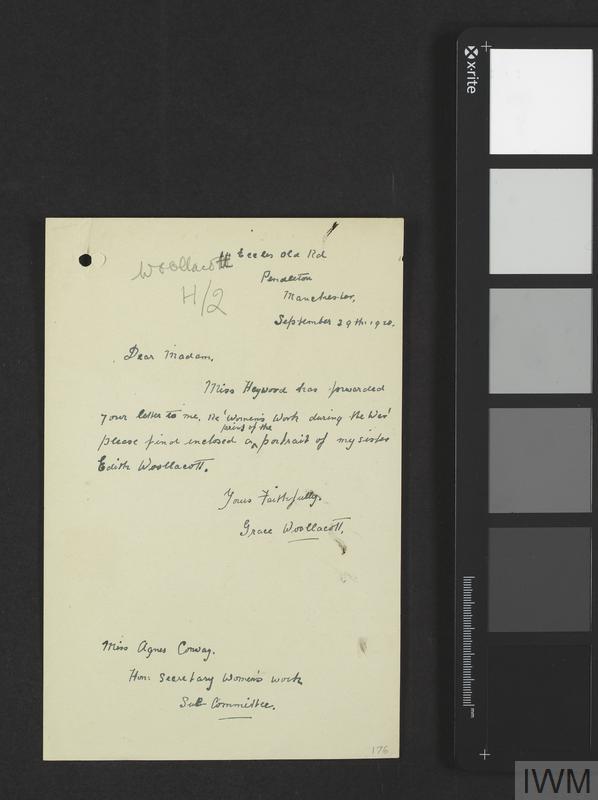 Woollacott
H/2
Eccles Old Rd
Pendleton
Manchester,
September 29th. 1920.
Dear Madam,
Miss Heywood has forwarded
your letter to me, re 'Women's Work during the War'
print of the
please find enclosed a portrait of my sister
Edith Woollacott.
Yours Faithfully.
Grace Woollacott.
Miss Agnes Conway.
Hon: Secretary Women's Work
Sub Committee.
176
x-rite
mm
IWM